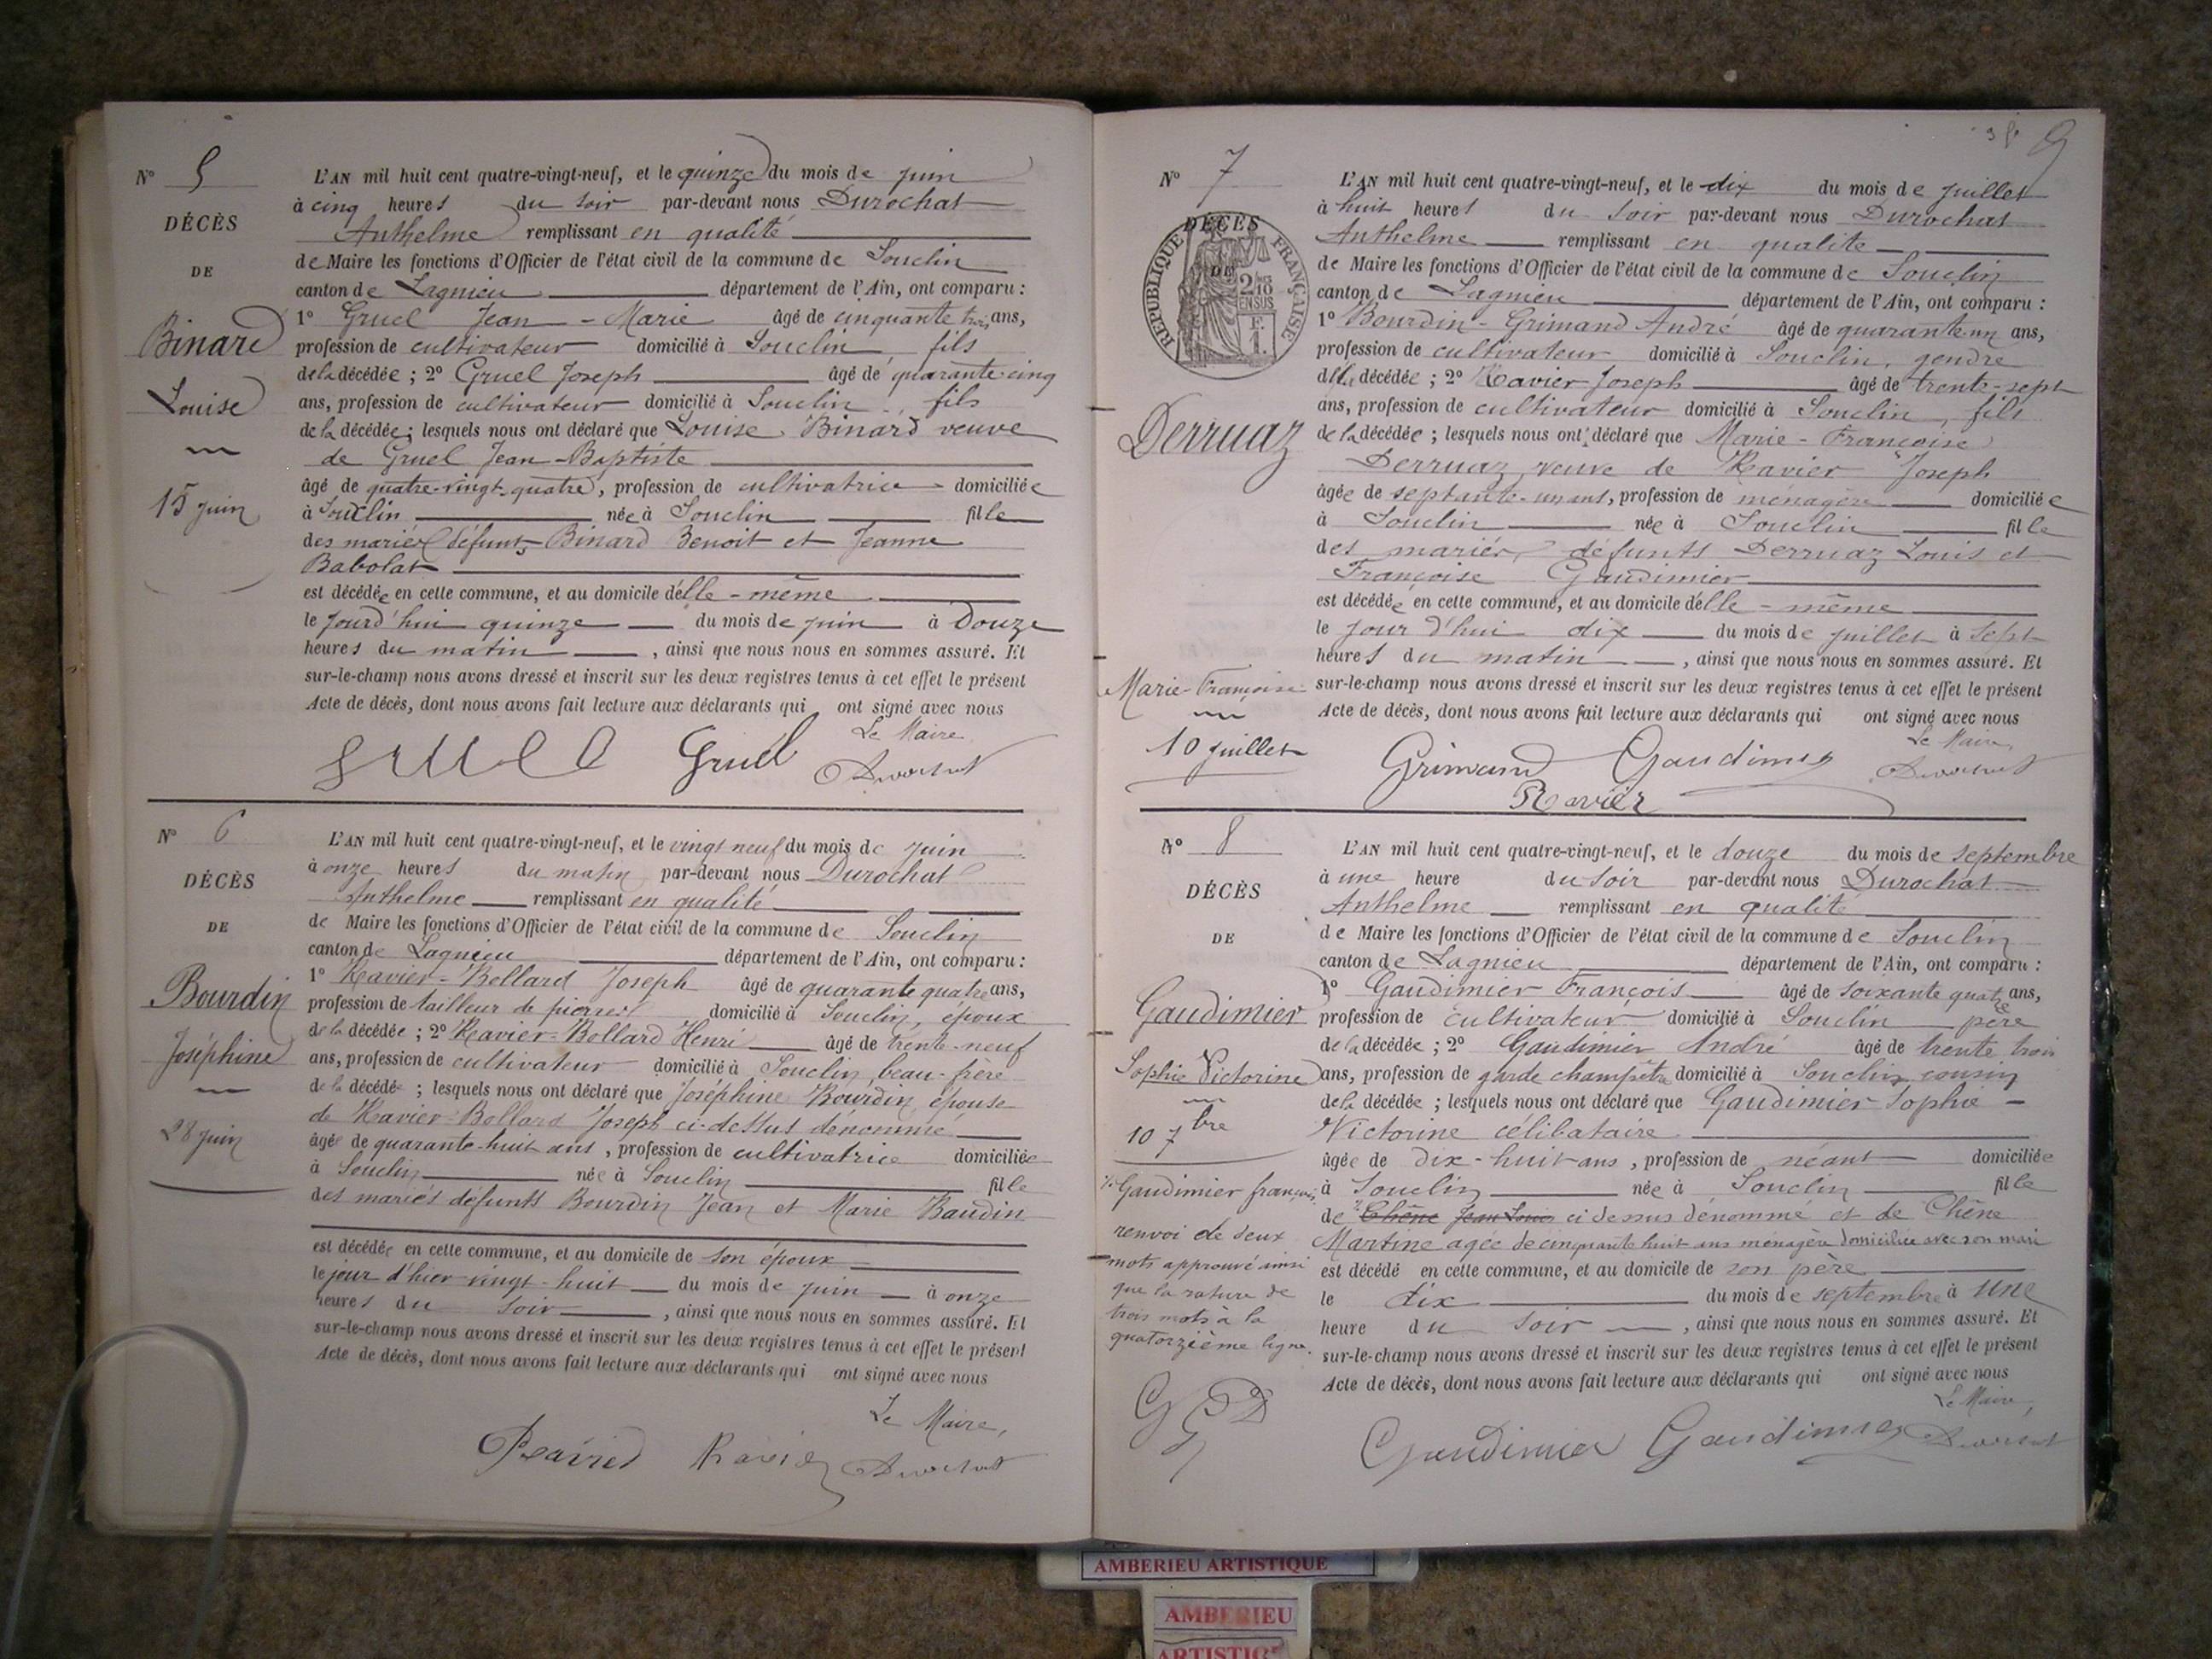 Nº 5
DÉCÈS
DE
Binard
Louise
15 juin
L'AN mil huit cent quatre-vingt-neuf, et le quinze du mois de juin
à cinq heures du soir par-devant nous Durochat
Anthelme remplissant en qualité
de Maire les fonctions d'Officier de l'état civil de la commune de Souclin
canton de Lagnieu département de l'Ain, ont comparu :
1º Gruel Jean-Marie âgé de cinquante trois ans,
profession de cultivateur domicilié à Souclin, fils
de la décédée ; 2º Gruel Joseph âgé de quarante-cinq
ans, profession de cultivateur domicilié à Souclin, fils
de la décédée ; lesquels nous ont déclaré que Louise Binard veuve
de Gruel Jean-Baptiste
âgé de quatre-vingt-quatre, profession de cultivatrice domiciliée
à Souclin née à Souclin fille
des mariés défunts Binard Benoit et Jeanne
Babolat
est décédée en cette commune, et au domicile d'elle-même
le jourd'hui quinze du mois de juin à douze
heures du matin, ainsi que nous nous en sommes assuré. Et
sur-le-champ nous avons dressé et inscrit sur les deux registres tenus à cet effet le présent
Acte de décès, dont nous avons fait lecture aux déclarants qui ont signé avec nous
Le Maire
gruel Gruel Durochat
Nº 6
DÉCÈS
DE
Bourdin
Joséphine
28 juin
L'AN mil huit cent quatre-vingt-neuf, et le vingt neuf du mois de juin
à onze heures du matin par-devant nous Durochat
Anthelme remplissant en qualité
de Maire les fonctions d'Officier de l'état civil de la commune de Souclin
canton de Lagnieu département de l'Ain, ont comparu :
1º Ravier-Bollard Joseph âgé de quarante quatre ans,
profession de tailleur de pierres domicilié à Souclin, époux
de la décédée ; 2º Ravier-Bollard Henri âgé de trente-neuf
ans, profession de cultivateur domicilié à Souclin, beau-frère
de la décédée ; lesquels nous ont déclaré que Joséphine Bourdin, épouse
de Ravier-Bollard Joseph ci-dessus dénommé
âgée de quarante-huit ans, profession de cultivatrice domiciliée
à Souclin née à Souclin fille
des mariés défunts Bourdin Jean et Marie Baudin
est décédée en cette commune, et au domicile de son époux
le jour d'hier vingt-huit du mois de juin à onze
heures du soir, ainsi que nous nous en sommes assuré. Et
sur-le-champ nous avons dressé et inscrit sur les deux registres tenus à cet effet le présent
Acte de décès, dont nous avons fait lecture aux déclarants qui ont signé avec nous
Le Maire,
Ravier Durochat
9
Nº 7
DÉCÈS
DE
RÉPUBLIQUE FRANÇAISE
Derruaz
Marie-Françoise
10 juillet
L'AN mil huit cent quatre-vingt-neuf, et le dix du mois de juillet
à huit heures du soir par-devant nous Durochat
Anthelme remplissant en qualité
de Maire les fonctions d'Officier de l'état civil de la commune de Souclin
canton de Lagnieu département de l'Ain, ont comparu :
1º Bourdin-Grimand André âgé de quarante un ans,
profession de cultivateur domicilié à Souclin, gendre
de la décédée ; 2º Ravier Joseph âgé de trente-sept
ans, profession de cultivateur domicilié à Souclin, fils
de la décédée ; lesquels nous ont déclaré que Marie-Françoise
Derruaz, veuve de Ravier Joseph
âgée de septante-un ans, profession de ménagère domiciliée
à Souclin née à Souclin fille
des mariés défunts Derruaz Louis et
Françoise Gaudimier
est décédée en cette commune, et au domicile d'elle-même
le jour d'hui dix du mois de juillet à sept
heures du matin, ainsi que nous nous en sommes assuré. Et
sur-le-champ nous avons dressé et inscrit sur les deux registres tenus à cet effet le présent
Acte de décès, dont nous avons fait lecture aux déclarants qui ont signé avec nous
Le Maire,
Grimand Gaudimier Durochat
Ravier
Nº 8
DÉCÈS
DE
Gaudimier
Sophie Victorine
10 7bre
Gaudimier françois
renvoi de deux
mots approuvé ainsi
que la rature de
trois mots à la
quatorzième ligne.
L'AN mil huit cent quatre-vingt-neuf, et le douze du mois de septembre
à une heure du soir par-devant nous Durochat
Anthelme remplissant en qualité
de Maire les fonctions d'Officier de l'état civil de la commune de Souclin
canton de Lagnieu département de l'Ain, ont comparu :
1º Gaudimier François âgé de soixante quatre ans,
profession de cultivateur domicilié à Souclin père
de la décédée ; 2º Gaudimier André âgé de trente trois
ans, profession de garde champêtre domicilié à Souclin cousin
de la décédée ; lesquels nous ont déclaré que Gaudimier Sophie-
Victorine célibataire
âgée de dix-huit ans, profession de néant domiciliée
à Souclin née à Souclin fille
de Chêne Jean Louis ci dessus dénommé et de Chêne
Martine agée de cinquante huit ans ménagère domiciliée avec son mari
est décédé en cette commune, et au domicile de son père
le dix du mois de septembre à une
heure du soir, ainsi que nous nous en sommes assuré. Et
sur-le-champ nous avons dressé et inscrit sur les deux registres tenus à cet effet le présent
Acte de décès, dont nous avons fait lecture aux déclarants qui ont signé avec nous
Le Maire,
Gaudimier Gaudimier Durochat
AMBERIEU ARTISTIQUE
AMBERIEU
ARTISTIQ